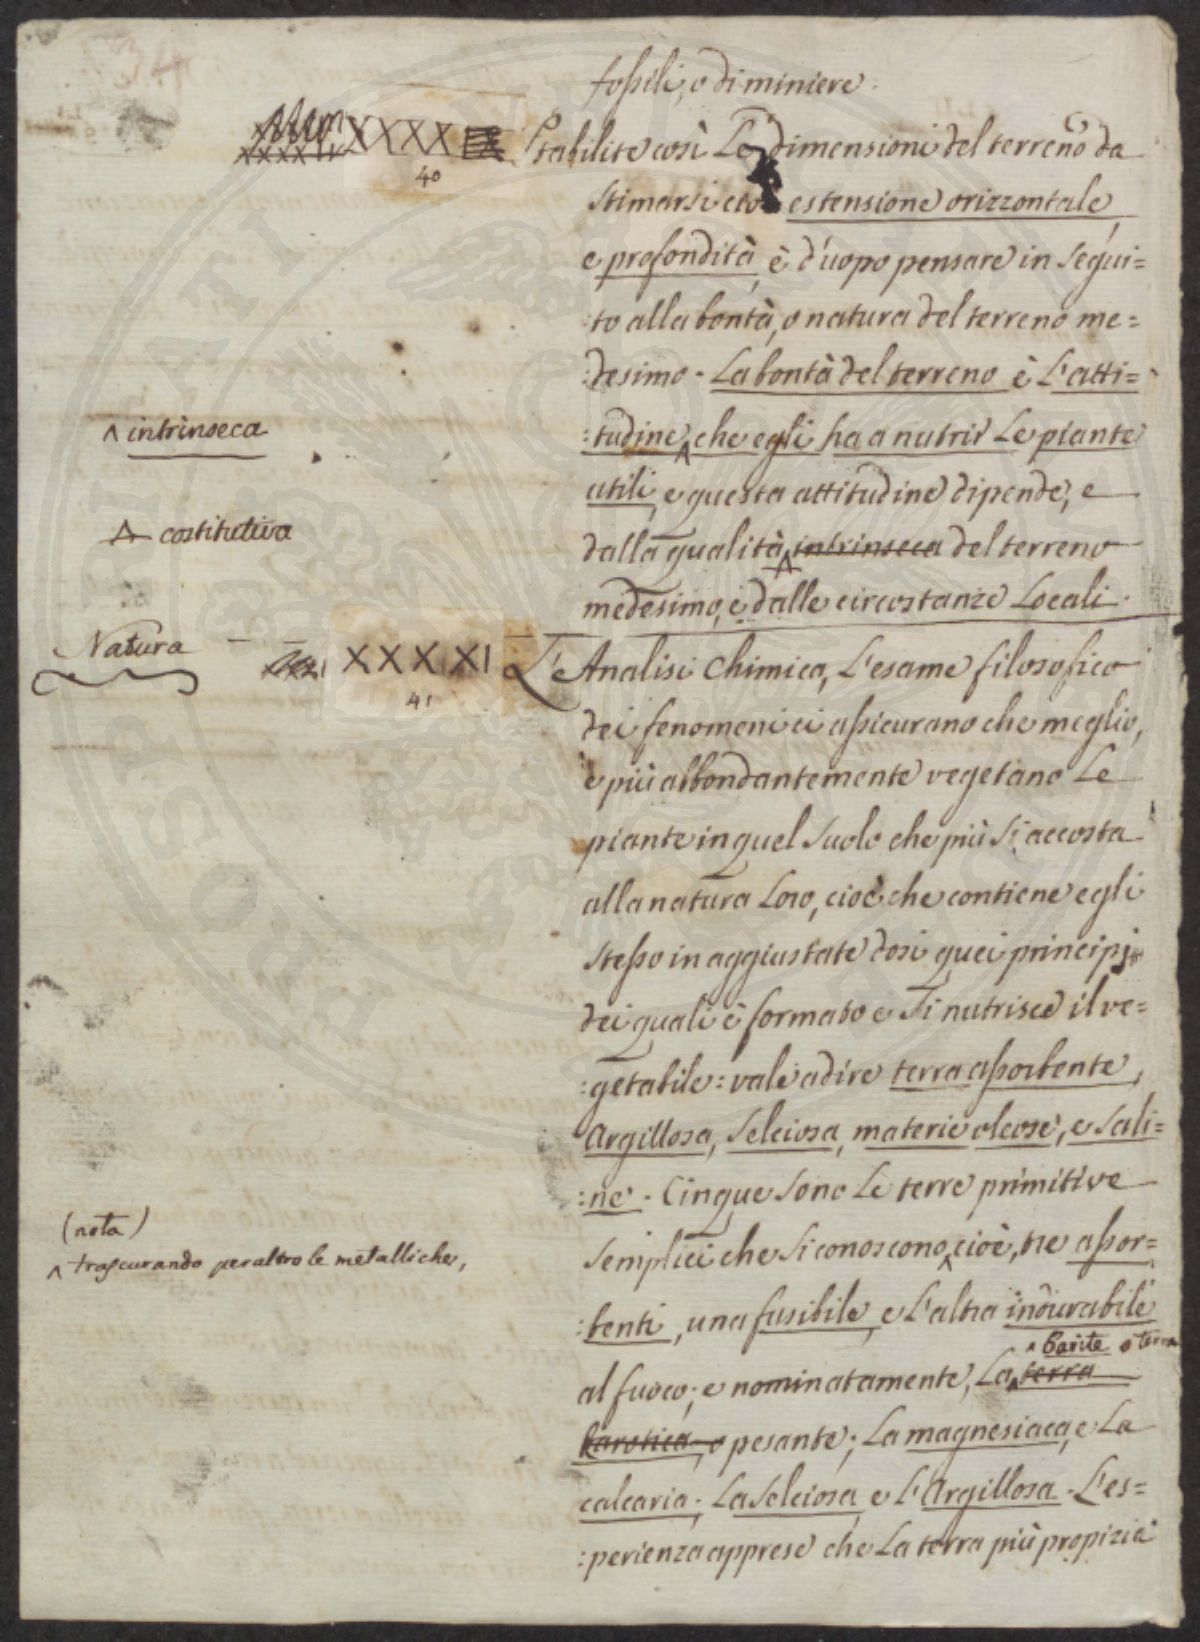 34
fossili, o di miniere.
XXXX
40
Stabilite così Le dimensioni del terreno da
stimarsi cioè estensione orizzontale,
e profondità, è d'uopo pensare in segui=
:to alla bontà, o natura del terreno me=
:desimo. La bontà del terreno è L'atti=
^ intrinseca
:tudine ^ che egli ha a nutrir Le piante
utili, e questa attitudine dipende, e
^ costitutiva
dalla qualità ^ intrinseca del terreno
medesimo, e dalle circostanze Locali.
Natura
XXXXI
41
L'Analisi Chimica, L'esame filosofico
dei fenomeni ci assicurano che meglio,
e più abbondantemente vegetano Le
piante in quel suolo che più si accosta
alla natura Loro, cioè che contiene egli
stesso in aggiustate dosi quei principj
dei quali è formato e si nutrisce il ve=
:getabile: vale a dire terra assorbente,
Argillosa, Selciosa, materie oleose, e Sali=
:ne. Cinque sono Le terre primitive
(nota)
^ trascurando peraltro le metalliche,
semplici che si conoscono, ^ cioè, tre assor=
:benti, una fusibile, e L'altra indurabile
^ Barite o terra
al fuoco; e nominatamente, La ^ terra
barotica o pesante; La magnesiaca, e La
calcaria; La Selciosa, e L'Argillosa. L'es=
:perienza apprese che La terra più propizia